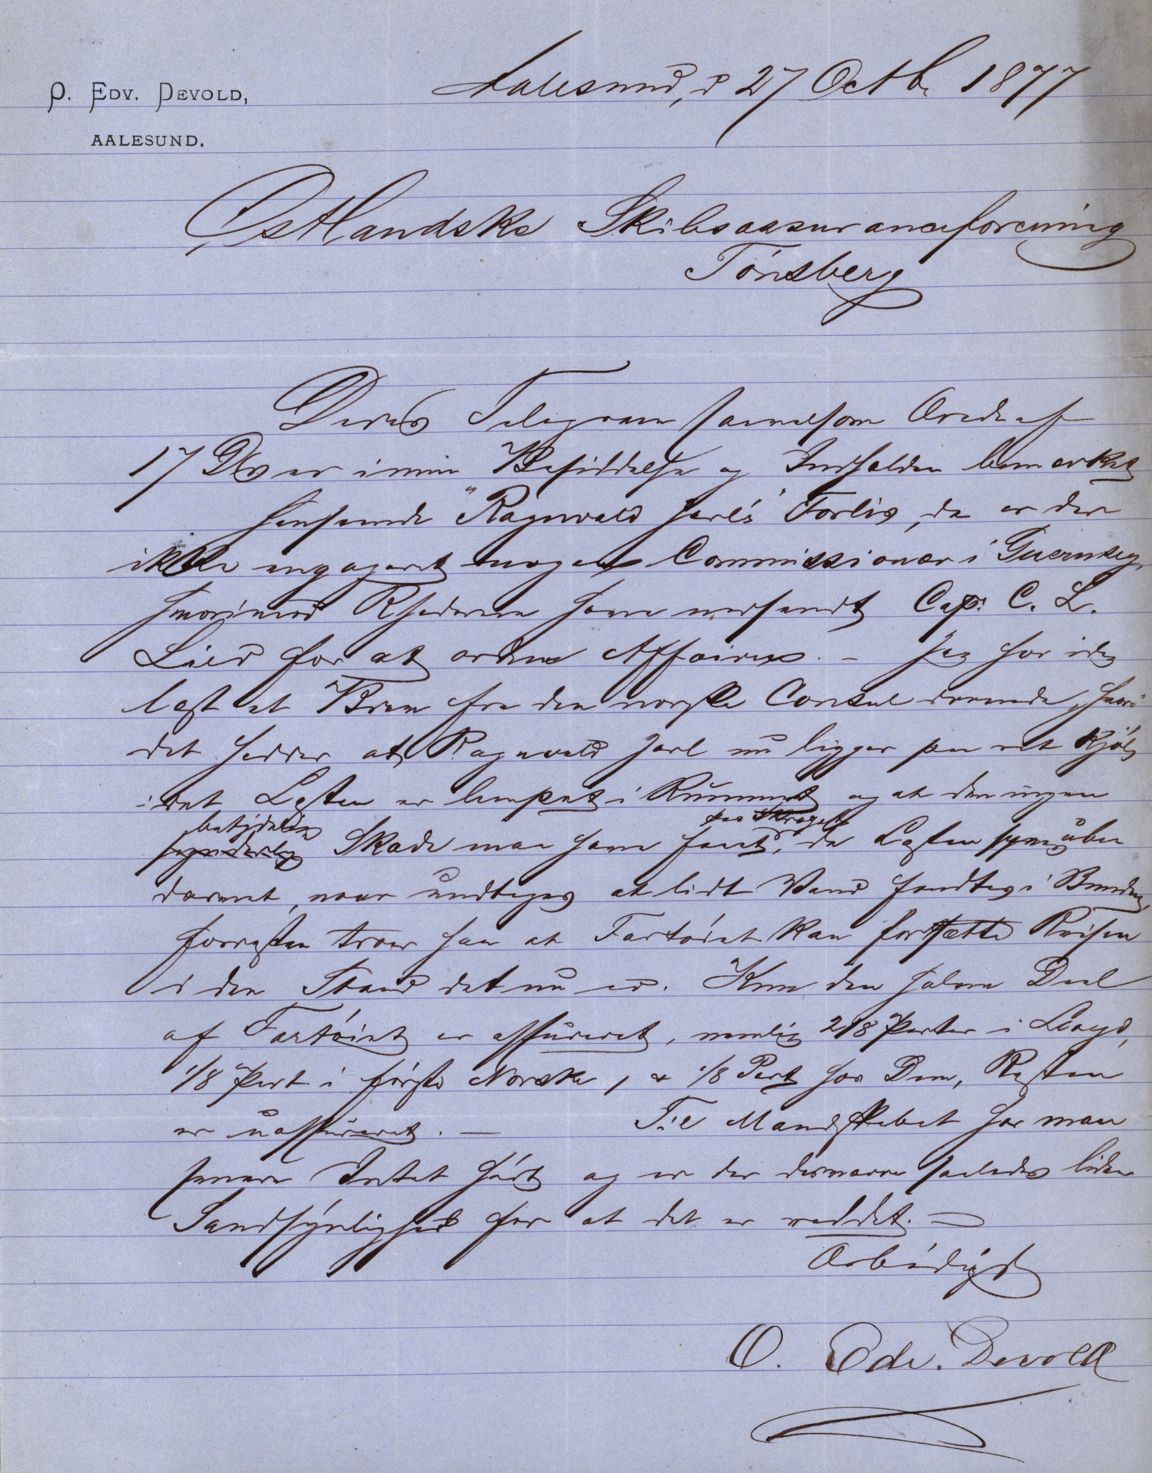 O. EDV. DEVOLD,
AALESUND.
Aalesund, d 27 Octb. 1877
Østlandske Skibsassuranceforening
Tønsberg
Deres Telegram saavelsom Ærede af
17 Ds er i min Besiddelse og Indholden bemærket
"Ragnvald Jarls" Forlis, da er der
ikke engageret nogen Commissionær i Guernsey,
hvorimod Rhederne have nedsendt Cap. C. L.
Lied for at ordne Affairen. – Jeg har idag
læst et Brev fra den norske Consul dernede, hvori
det hedder at Ragnvald Jarl nu ligger paa ret Kjøl
idet Lasten er lempet i Rummet og at den ingen
betydelig
paa Skroget
synderlig Skade maa have faaet, da Lasten synes uben
darvet, naar undtages at lidt Vand fandtes i Bunden,
forresten troer han at Fartøiet kan fortsætte Reisen
i den Stand det nu er. Kun den halve Deel
af Fartøiet er assureret, nemlig 2/8 Parter i Lloyd,
1/8 Part i første Norske, & 1/8 Part hos Dem, Resten
er uassureret. – Til Mandskabet har man
senere Intet hørt og er der desværre saaledes liden
Sandsynlighed for at det er reddet. –
Ærbødigst
O. Edv. Devold